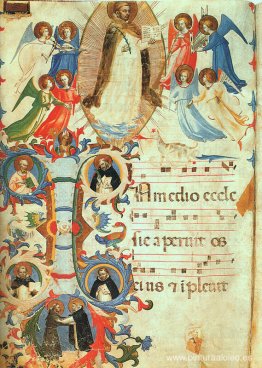 IN medio eccle
sie aperuit os
eius & ipleuit
www.pinturaaloleo.es